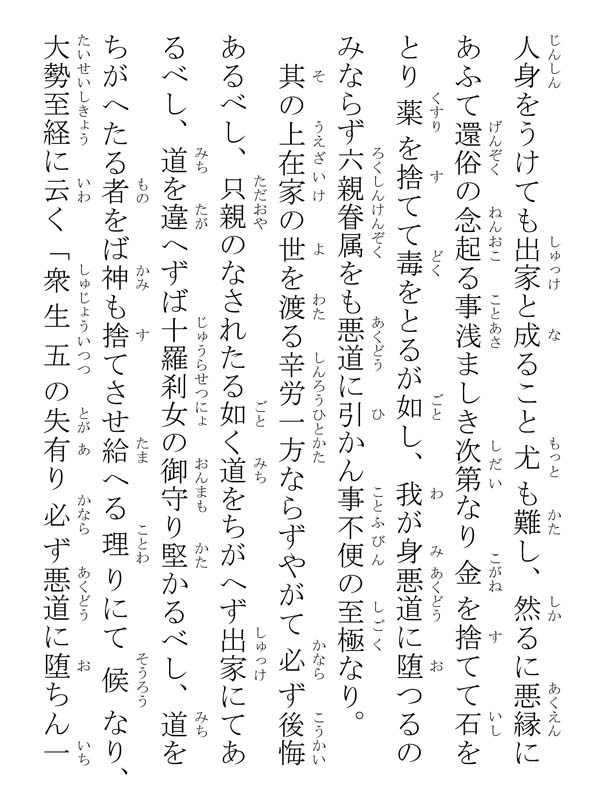 人身をうけても出家と成ること尤も難し、然るに悪縁に
あふて還俗の念起る事浅ましき次第なり金を捨てて石を
とり薬を捨てて毒をとるが如し、我が身悪道に堕つるの
みならず六親眷属をも悪道に引かん事不便の至極なり。
其の上在家の世を渡る辛労一方ならずやがて必ず後悔
あるべし、只親のなされたる如く道をちがへず出家にてあ
るべし、道を違へずば十羅刹女の御守り堅かるべし、道を
ちがへたる者をば神も捨てさせ給へる理りにて候なり、
大勢至経に云く「衆生五の失有り必ず悪道に堕ちん一